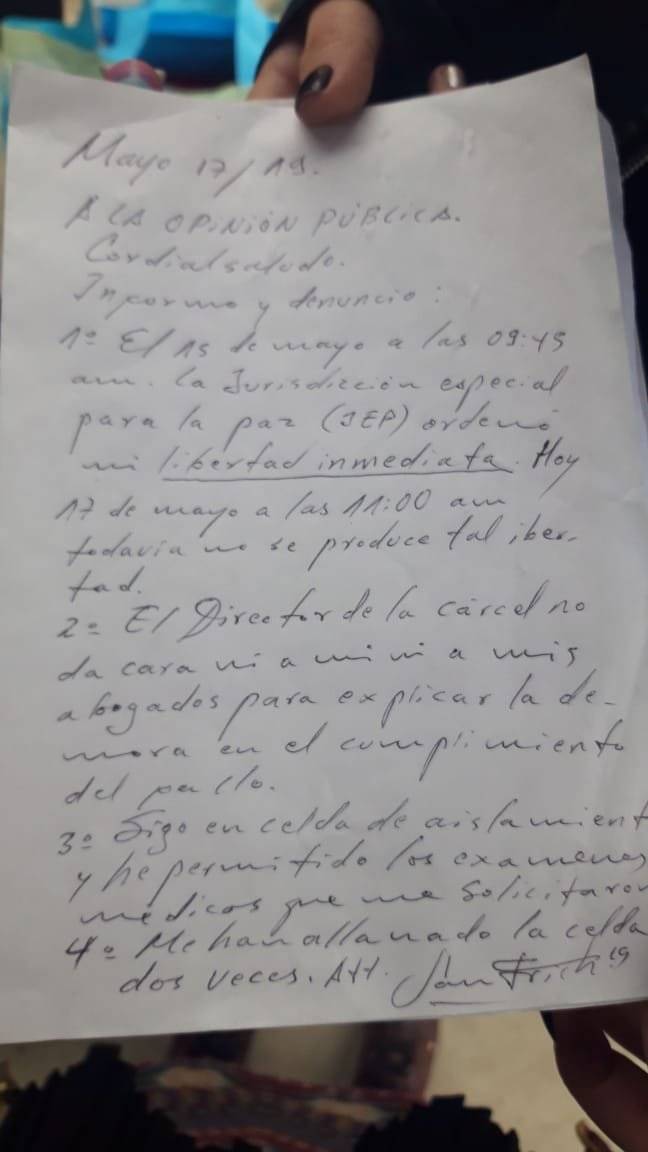 Mayo 17/19.
A LA OPINIÓN PÚBLICA.
Cordial saludo.
Informo y denuncio:
1º El 15 de mayo a las 09:45
am. la Jurisdicción especial
para la paz (JEP) ordenó
mi libertad inmediata. Hoy
17 de mayo a las 11:00 am
todavía no se produce tal liber-
tad.
2º El Director de la cárcel no
da cara ni a mi ni a mis
abogados para explicar la de-
mora en el cumplimiento
del fallo.
3º Sigo en celda de aislamient
y he permitido los examenes
médicos que me solicitaron
4º Me han allanado la celda
dos veces. Att.